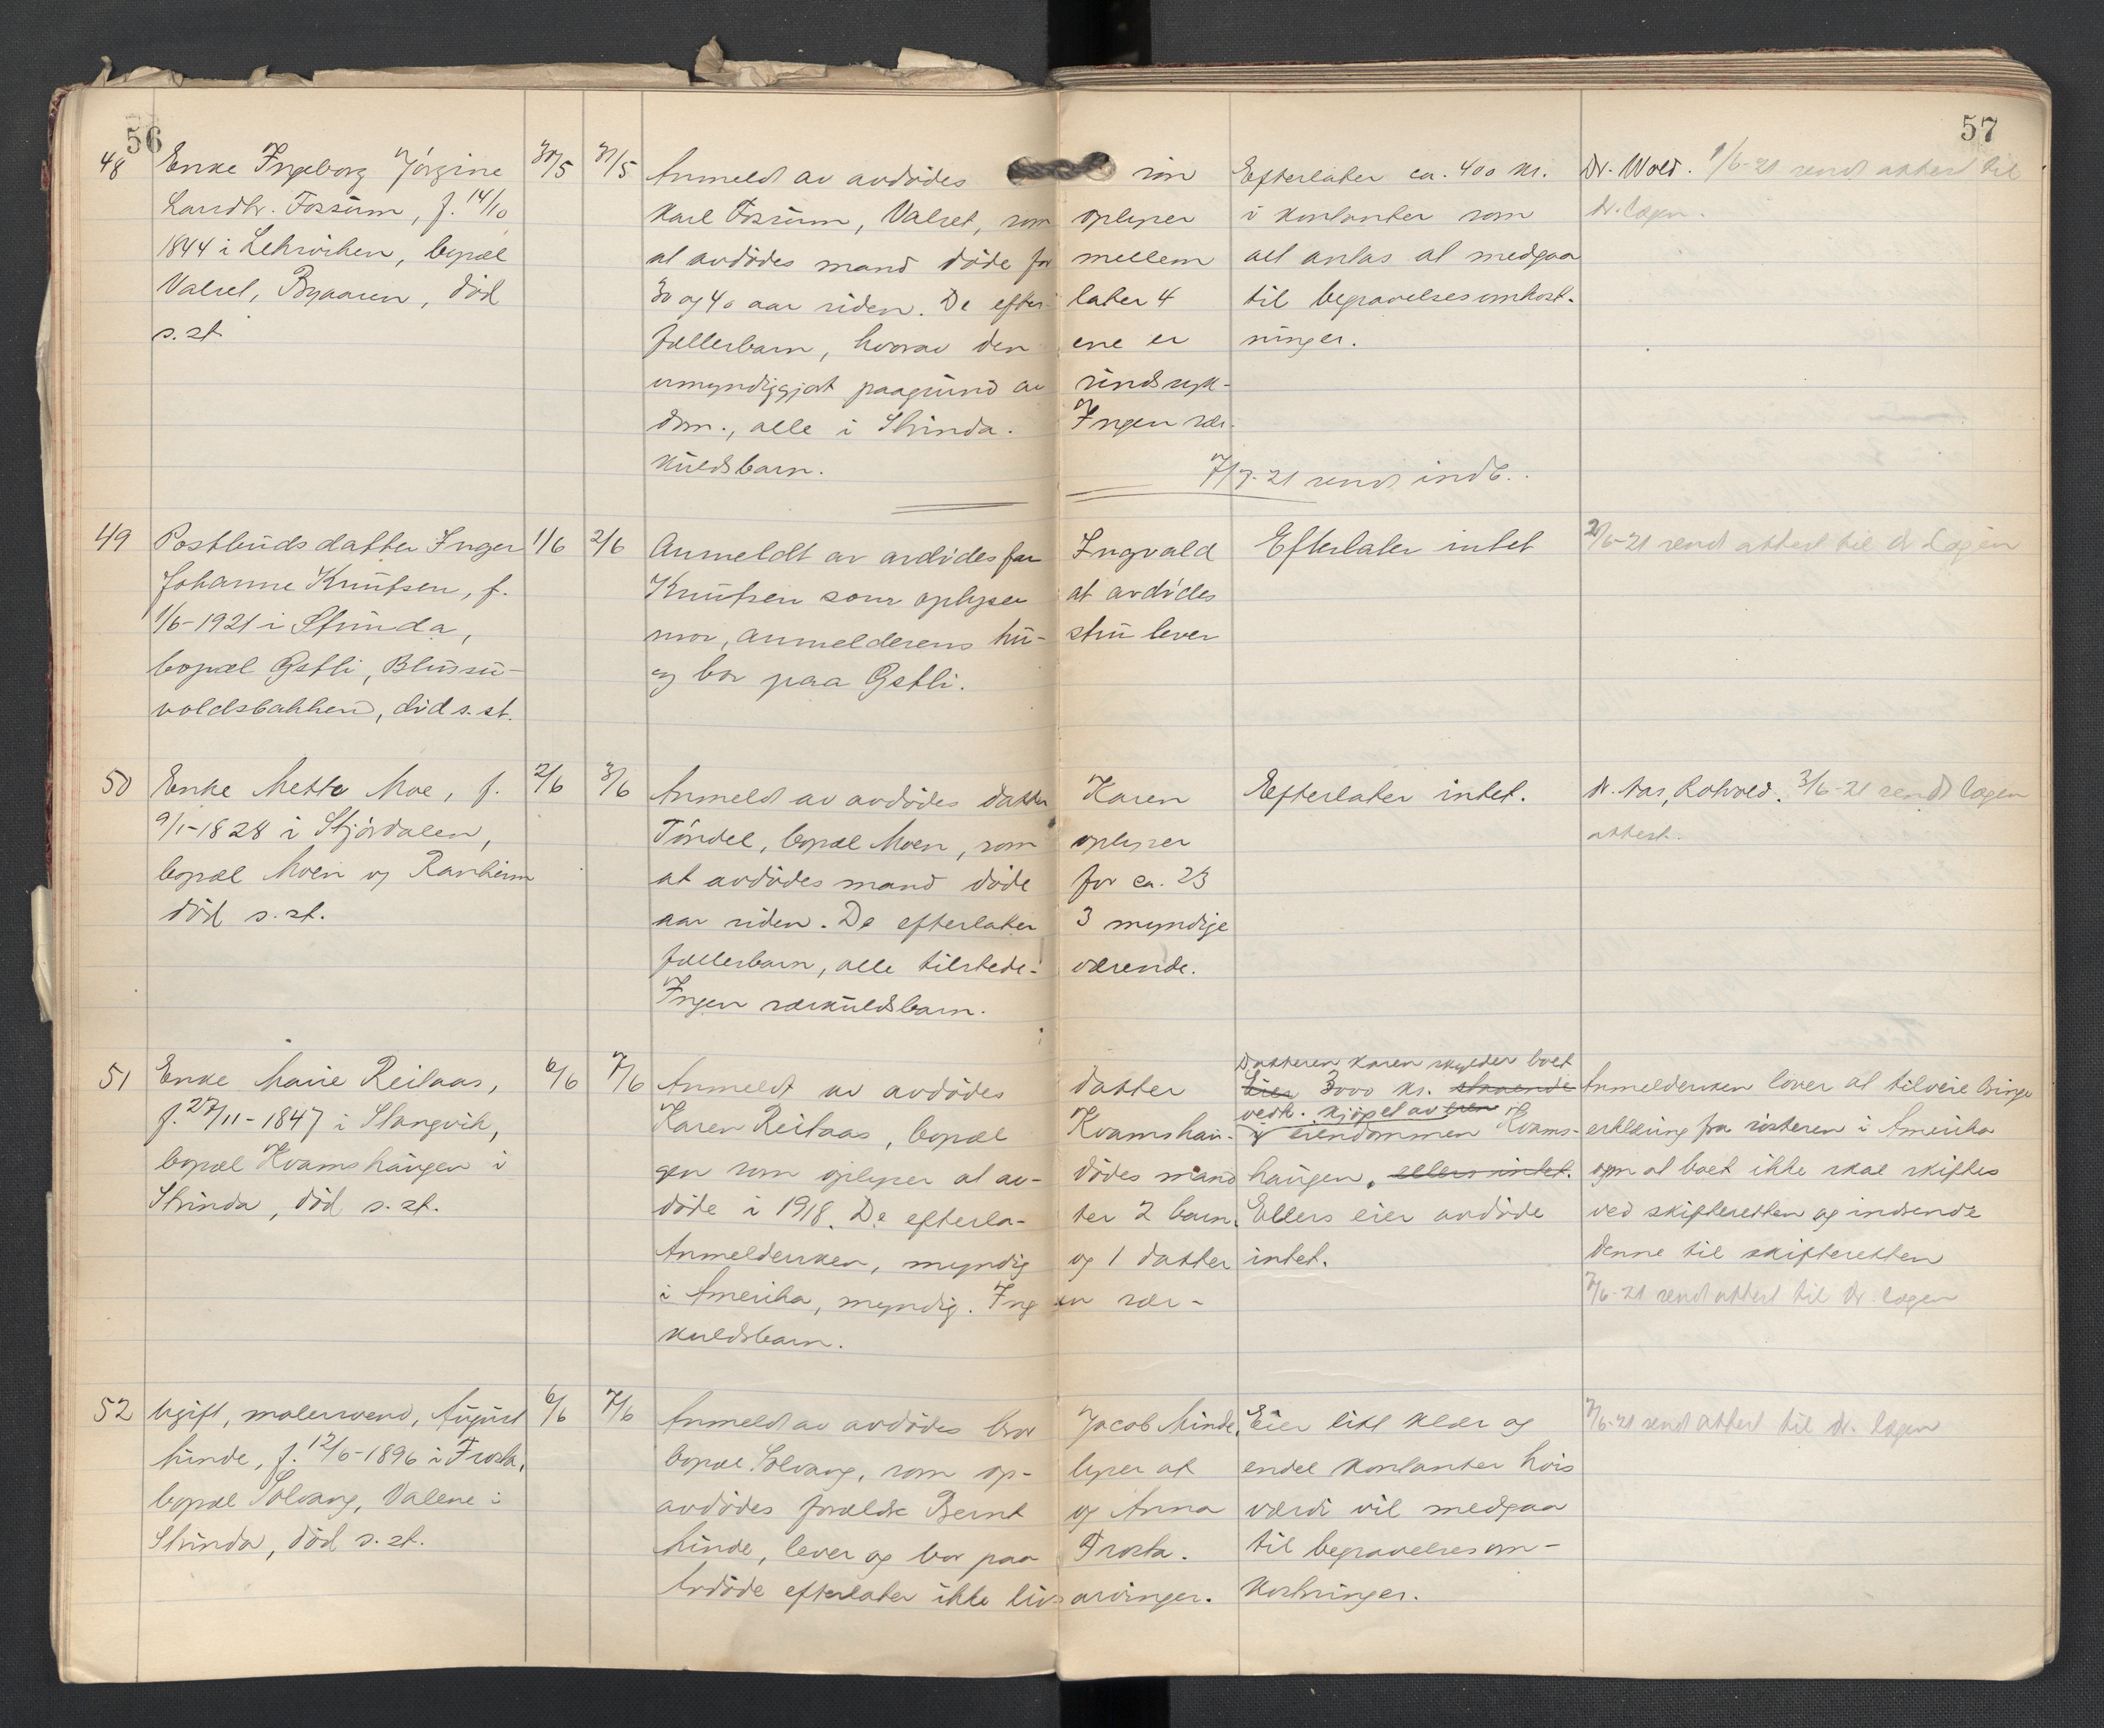 56
57
48
Enke Ingeborg Jörgine
Landbr. Fossum, f. 14/10
1844 i Leksviken, bopæl
Valset, Byaasen, död
s. st.
30/5
31/5
Anmeldt av avdödes sön
Karl Fossum, Valset, som oplyser
at avdödes mand döde for mellem
30 og 40 aar siden. De efterlater 4
fællesbarn, hvorav den ene er
umyndiggjort paagrund av sindssyk-
dom., alle i Strinda. Ingen sær-
kuldsbarn.
7/7-21 sendt indb.
Efterlater ca. 400 kr.
i kontanter som
alt antas at medgaa
til begravelsesomkost-
ninger.
Dr. Wold. 1/6-21 sendt attest til
dr. lægen.
49
Postbuds datter Inger
Johanne Knutsen, f.
1/6-1921 i Strinda,
bopæl Gstli, Blussu-
voldsbakken, död s. st.
1/6
2/6
Anmeldt av avdödes far Ingvald
Knutsen som oplyser at avdödes
mor, anmelderens hustru lever
og bor paa Gstli.
Efterlater intet
2/6-21 sendt attest til dr lægen
50
Enke Mette Moe, f.
9/1-1828 i Stjördalen,
bopæl Moen og Ranheim
död s. st.
2/6
3/6
Anmeldt av avdödes datter Karen
Töndel, bopæl Moen, som oplyser
at avdödes mand döde for ca. 23
aar siden. De efterlater 3 myndige
fællesbarn, alle tilstedeværende.
Ingen særkuldsbarn.
Efterlater intet.
dr. Aas, Rotvold. 3/6-21 sendt lægen
attest.
51
Enke Marie Reilaas,
f. 27/11-1847 i Stangvik,
bopæl Kvamshaugen i
Strinda, död s. st.
6/6
7/6
Anmeldt av avdödes datter
Karen Reilaas, bopæl Kvamshau-
gen som oplyser at avdödes mand
döde i 1918. De efterlater 2 barn.
Anmeldersken, myndig og 1 datter
i Amerika, myndig. Ingen sær-
kuldsbarn.
Datteren Karen skylder boet
Eier 3000 kr. staaende
vedk. kjöpet av
i eiendommen Kvams-
haugen, ellers intet.
Ellers eier avdöde
intet.
Anmeldersken lover at tilveie bringe
erklæring fra sösteren i Amerika
om at boet ikke skal skiftes
ved skifteretten og indsende
denne til skifteretten
7/6-21 sendt attest til dr. lægen
52
Ugift, malersvend, August
Minde, f. 12/6-1896 i Frosta,
bopæl Solvang, Valene i
Strinda, död s. st.
6/6
7/6
Anmeldt av avdödes bror Jacob Minde,
bopæl Solvang, som oplyser at
avdödes forældre Bernt og Anna
Minde, lever og bor paa Frosta.
Avdöde efterlater ikke livsarvinger.
Eier litt klær og
endel kontanter hvis
værdi vil medgaa
til begravelsesom-
kostninger.
7/6-21 sendt attest til dr. lægen